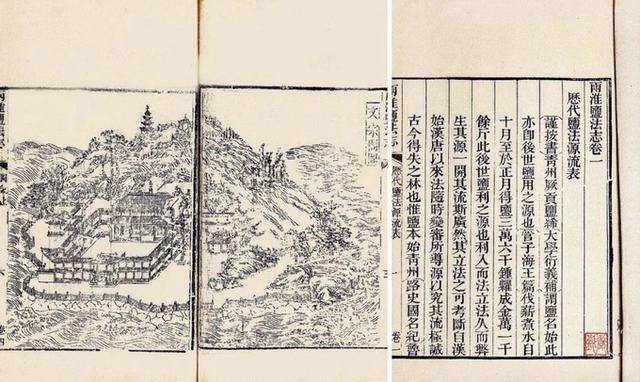 兩淮鹽法志卷一
歷代鹽法源流表
謹按書青州厥貢鹽絺大學衍義補謂鹽名始此
亦卽後世鹽用之源也管子海王篇伐薪煮水自
十月至於正月得鹽三萬六千鍾糶成金萬一千
餘斤此後世鹽利之源也利入而法立法久而弊
生其源一開其流斯廣然其立法之可考斷自漢
始漢唐以來法隨時變審所導源以究其流極誠
古今得失之林也惟鹽本始青州路史國名紀魯
兩淮鹽法志 歷代鹽法源流表 一 卷一
文宗閣圖
兩淮鹽法志
兩淮鹽法志 六 卷四